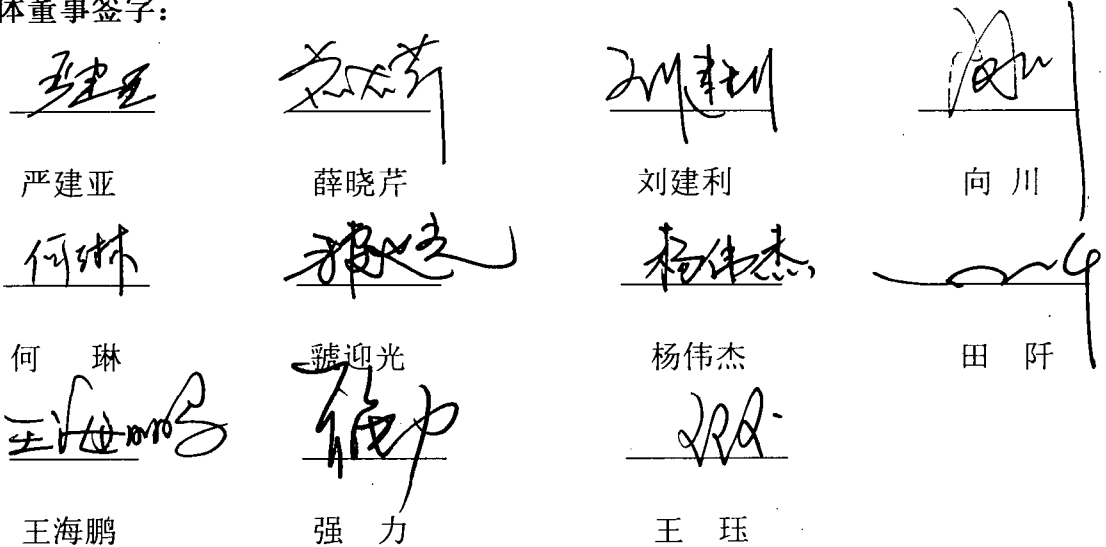 体董事签字：
严建亚 薛晓芹 刘建利 向 川
何琳 杨伟杰
何 琳 虢迎光 杨伟杰 田 阡
王海鹏
王海鹏 强 力 王 珏